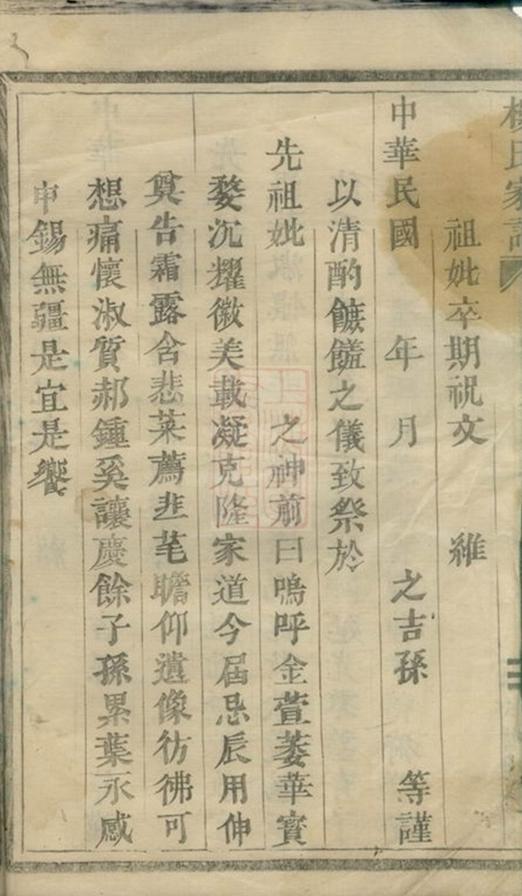 楊氏家譜
祖妣卒期祝文　維
中華民國　年　月　之吉孫　等謹
以清酌饝饈之儀致祭於
先祖妣　之神前曰嗚呼金萱萎華寳
婺沉耀徽美載凝克隆家道今届忌辰用伸
奠告霜露含悲菜薦韭芼瞻仰遺像彷彿可
想痛懷淑質郝鍾奚讓慶餘子孫累葉永感
申錫無疆是宜是饗